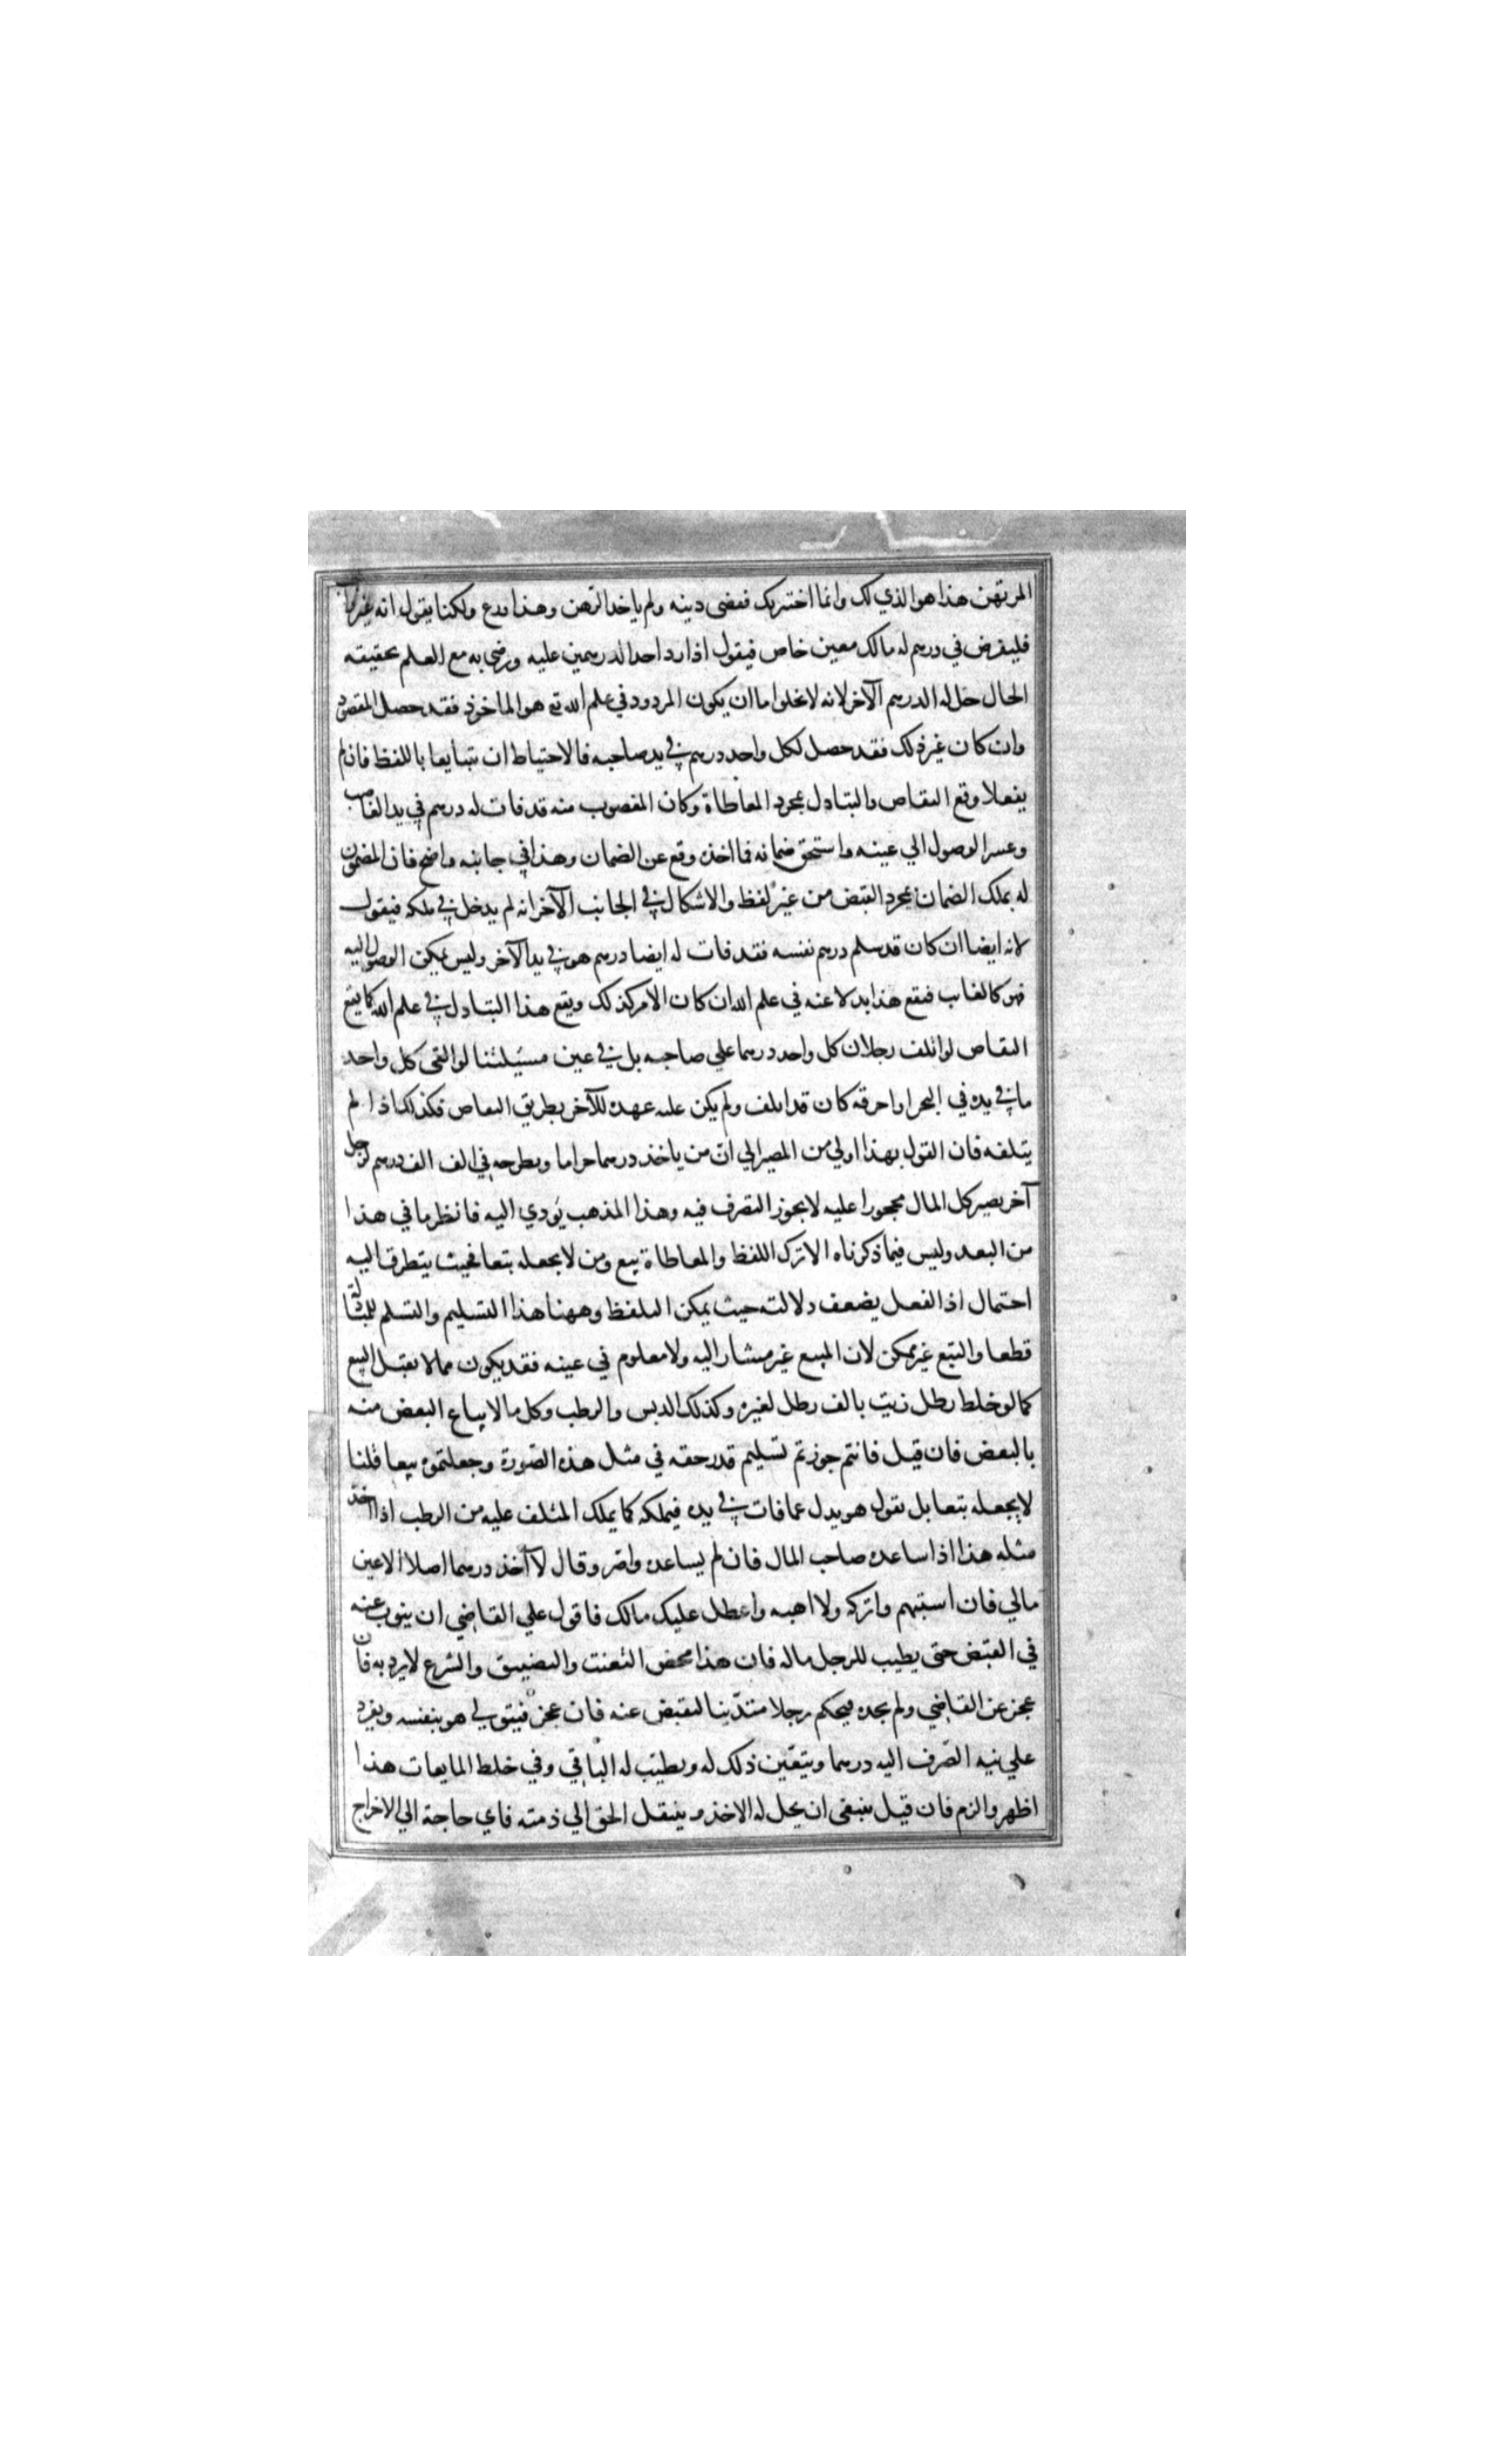 المرتهن هذا هو الذي لك وانما اختبرك فقضى دينه ولم ياخذ الرهن وهذا ورع ولكنا يقول انه غير
فليفرض في درهم له مالك معين خاص فيقول اذا رد احد الدرهمين عليه ورضي به مع العلم بحقيقته
الحال حل له الدرهم الآخر لانه لا يخلوا ما ان يكون المردود في علم الله تع هو الماخوذ فقد حصل المقصود
وان كان غير ذلك فقد حصل لكل واحد درهم في يد صاحبه فالاحتياط ان يتبايعا باللفظ فان لم
يفعلا وقع التقاص والتبادل بمجرد المعاطاة وكان المغصوب منه قد فات له درهم في يد الغاصب
وعسر الوصول الي عينه واستحق ضمانه فما اخذه وقع عن الضمان وهذا في جانبه واضح فان المضمون
له يملك الضمان بمجرد القبض من غير لفظ والاشكال في الجانب الآخر انه لم يدخل في ملكه فيقول
لانه ايضا ان كان قد سلم درهم نفسه فقد فات له ايضا درهم هو في يد الآخر وليس يمكن الوصول اليه
فهو كالغايب فيقع هذا بدلا عنه في علم الله ان كان الأمر كذلك ويقع هذا التبادل في علم الله كما يقع
التقاص لو اتلف رجلان كل واحد درهما علي صاحبه بل في عين مسئلتنا لو القى كل واحد
ما في يده في البحر او احرقه كان قد اتلف ولم يكن عليه عهدة للآخر بطريق التقاص فكذلك اذا لم
يتلفه فان القول بهذا اولي من المصير الي ان من ياخذ درهما حراما ويطرحه في الف الف درهم لرجل
آخر يصير كل المال محجورا عليه لا يجوز التصرف فيه وهذا المذهب يؤدي اليه فانظر ما في هذا
من البعد وليس فيما ذكرناه الا ترك اللفظ والمعاطاة بيع ومن لا يجعله بيعا فحيث يتطرق اليه
احتمال اذ الفعل يضعف دلالته حيث يمكن التلفظ وههنا هذا التسليم والتسلم للمبادلة
قطعا والبيع غير ممكن لان المبيع غير مشار اليه ولا معلوم في عينه فقد يكون مما لا يقبل البيع
كما لو خلط رطل زيت بالف رطل لغيره وكذلك الدبس والرطب وكل ما لا يباع البعض منه
بالبعض فان قيل فانتم جوزتم تسليم قدر حقه في مثل هذه الصورة وجعلتموه بيعا قلنا
لا يجعله بيعا بل نقول هو بدل عما فات في يده فيملكه كما يملك المتلف عليه من الرطب اذا اخذ
مثله هذا اذا ساعده صاحب المال فان لم يساعده واضر وقال لا آخذ درهما اصلا الا عين
مالي فان استبهم واتركه ولا اهبه واعطل عليك مالك فاقول علي القاضي ان ينوب عنه
في القبض حتى يطيب للرجل ماله فان هذا محض التعنت والتضييق والشرع لا يرد به فان
عجز عن القاضي ولم يجده فيحكم رجلا متدينا ليقبض عنه فان عجز فيتولي هو بنفسه ويفرد
علي نية الصرف اليه درهما ويتعين ذلك له ويطيب له الباقي وفي خلط المايعات هذا
اظهر والزم فان قيل ينبغي ان يحل له الاخذ وينتقل الحق الي ذمته فاي حاجة الي الاخراج